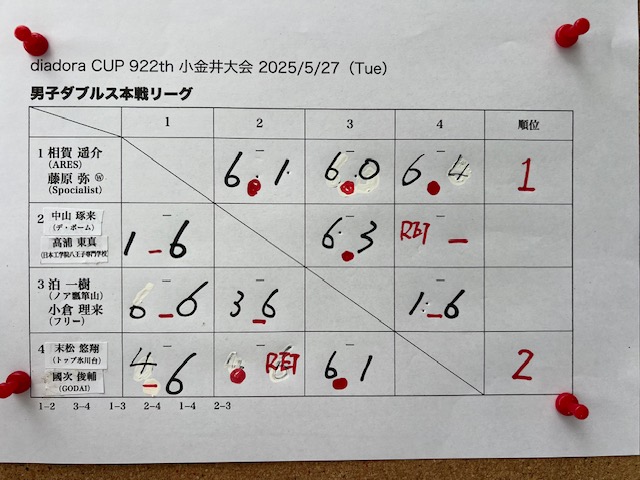 diadora CUP 922th 小金井大会 2025/5/27（Tue）
男子ダブルス本戦リーグ
1 2 3 4 順位
1 相賀 遥介
(ARES)
藤原 弥 Ⓦ
(Spocialist)
6 － 1 6 － 0 6 － 4 1
2 中山 琢来
(デ・ボーム)
高浦 東真
(日本工学院八王子専門学校)
1 － 6 6 － 3 RET －
3 泊 一樹
(ノア瓢箪山)
小倉 理来
(フリー)
0 － 6 3 － 6 1 － 6
4 末松 悠翔
(トップ氷川台)
國次 俊輔
(GODAI)
4 － 6 － RET 6 － 1 2
1–2 3–4 1–3 2–4 1–4 2–3